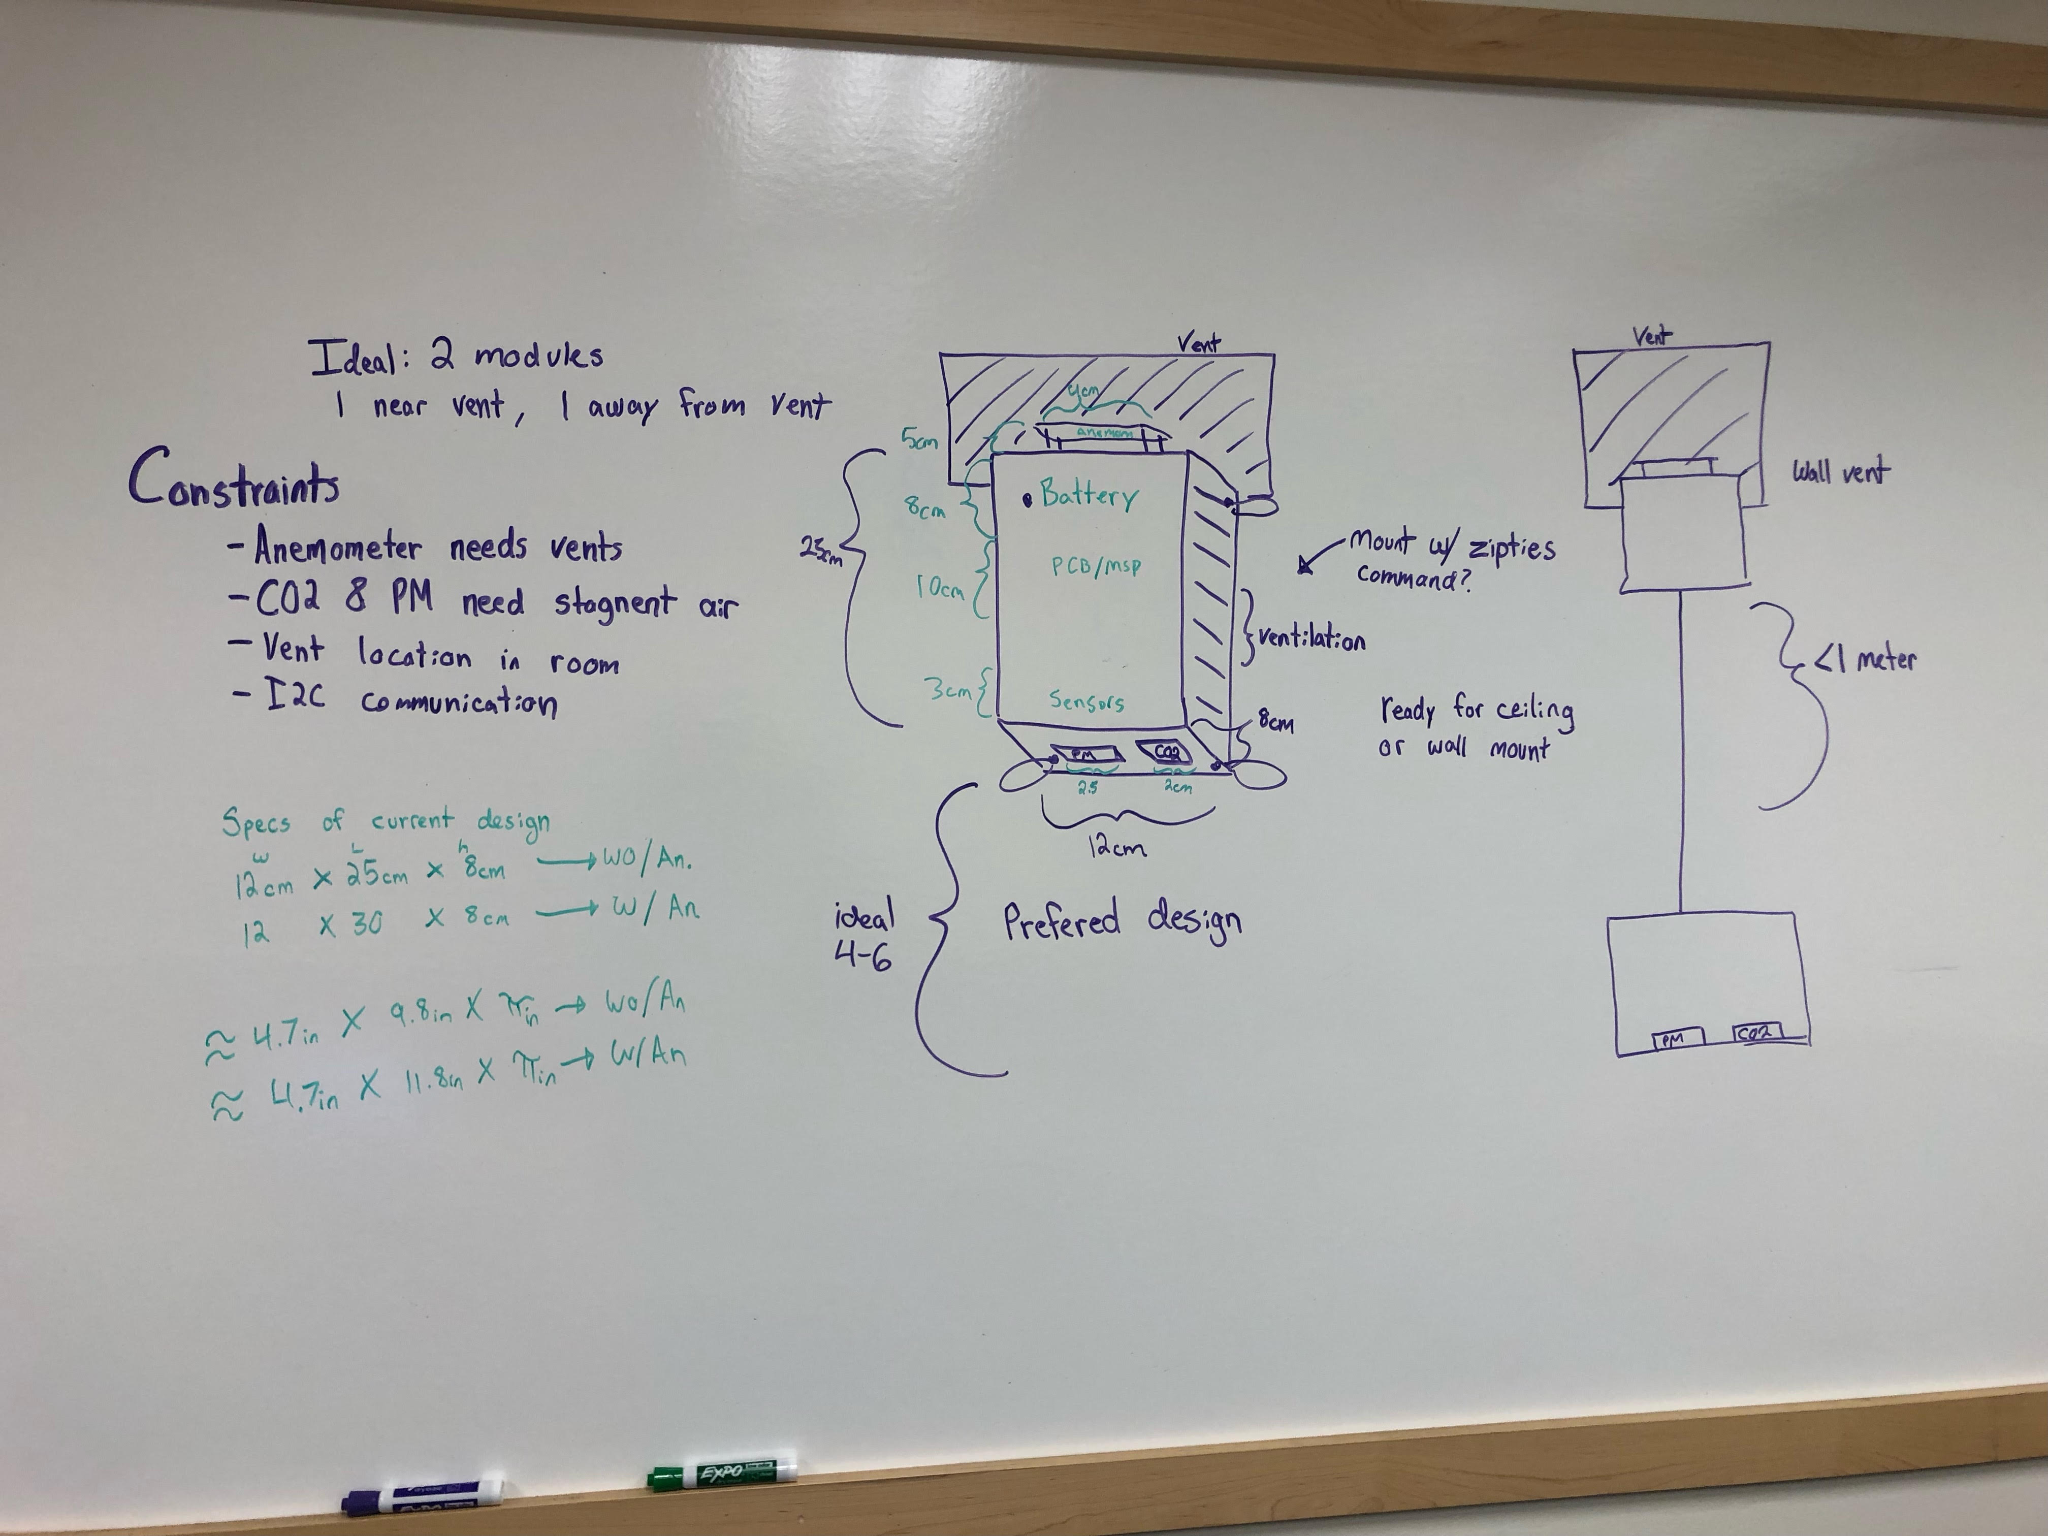 Ideal: 2 modules
1 near vent, 1 away from vent
Constraints
- Anemometer needs vents
- CO2 & PM need stagnent air
- Vent location in room
- I2C communication
Specs of current design
w L h
12cm x 25cm x 8cm → WO/An.
12 x 30 x 8cm → W/An.
≈ 4.7in x 9.8in x πin → WO/An
≈ 4.7in x 11.8in x πin → W/An
Vent
4cm
Anemom
5cm
8cm
Battery
25cm
10cm
PCB/MSP
3cm
Sensors
PM
CO2
2.5
2cm
12cm
8cm
ventilation
Mount w/ zipties
command?
ready for ceiling
or wall mount
ideal
4-6
Prefered design
Vent
Wall vent
<1 meter
PM
CO2
EXPO